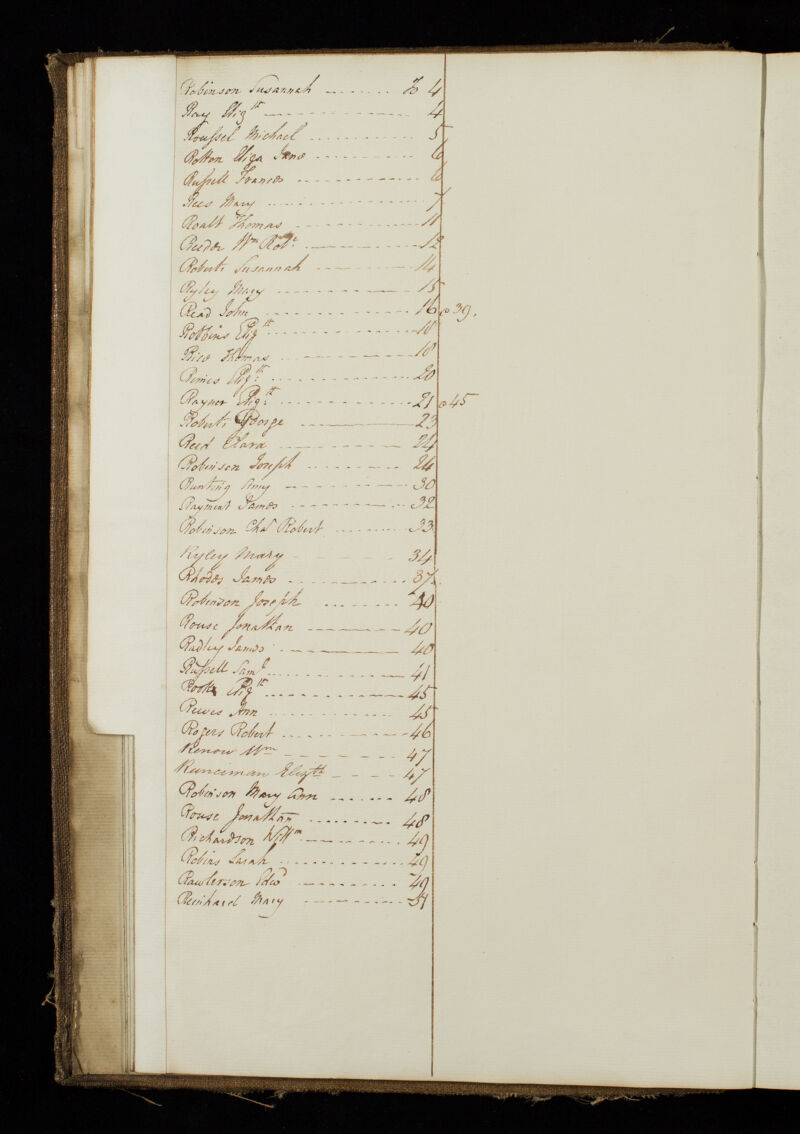 Robinson Susannah 4
Ray Eliz.th 4
Roussel Michael 5
Rotton Eliza Jane 6
Russell Frances 6
Rees Mary 7
Roalt Thomas 11
Reeder Wm Robt. 12
Roberts Susannah 14
Ryley Mary 15
Read John 16 39.
Robbins Eliz.th 18
Rice Thomas 18
Rimes Eliz.th 20
Rayner Eliz.th 21 45
Roberts George 23
Reed Clara 24
Robinson Joseph 24
Runting Amy 30
Rayment James 32
Robinson Chas Robert 33
Ryley Mary 34
Rhodes James 37
Robinson Joseph 40
Rouse Jonathan 40
Radley James 40
Russell Saml 41
Rooke Eliz.th 45
Reeves Ann 45
Rogers Robert 46
Renow Wm 47
Runciman Elizth 47
Robinson Mary Ann 48
Rouse Jonathan 48
Richardson Willm 49
Robins Sarah 49
Rawlerson Edwd 49
Reinhard Mary 51